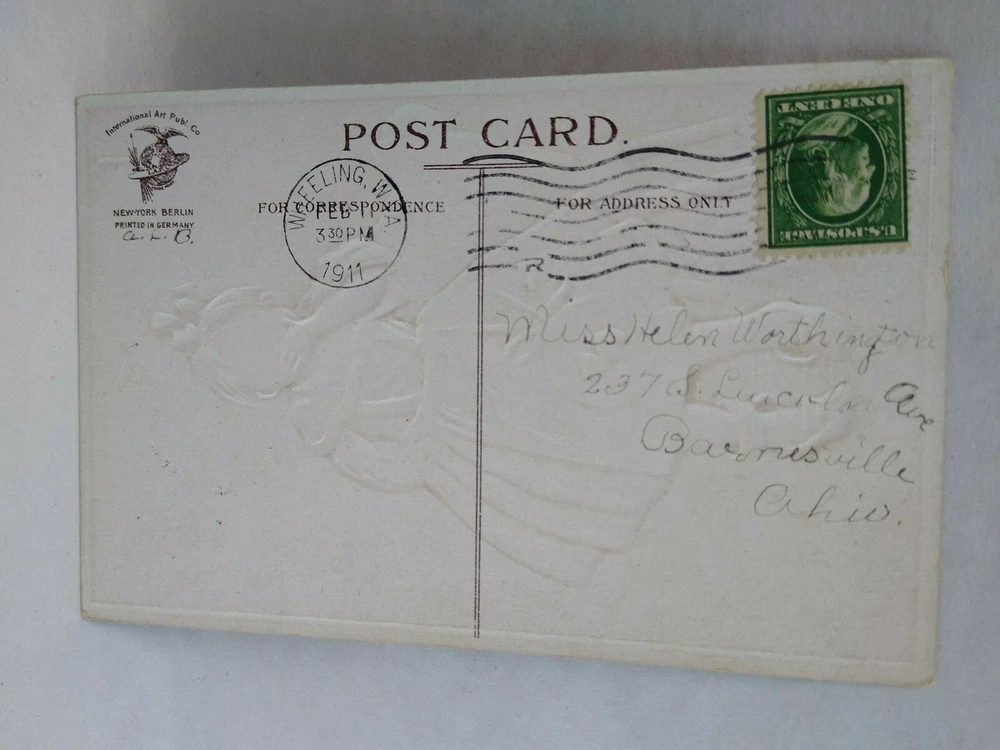 International Art Publ. Co
NEW-YORK BERLIN
PRINTED IN GERMANY
A. L. B.
POST CARD.
FOR CORRESPONDENCE
FOR ADDRESS ONLY
WHEELING, W. VA.
FEB 1
3 30 PM
1911
U.S. POSTAGE
ONE CENT
Miss Helen Worthington
237 S. Lincoln Ave
Barnesville
Ohio.